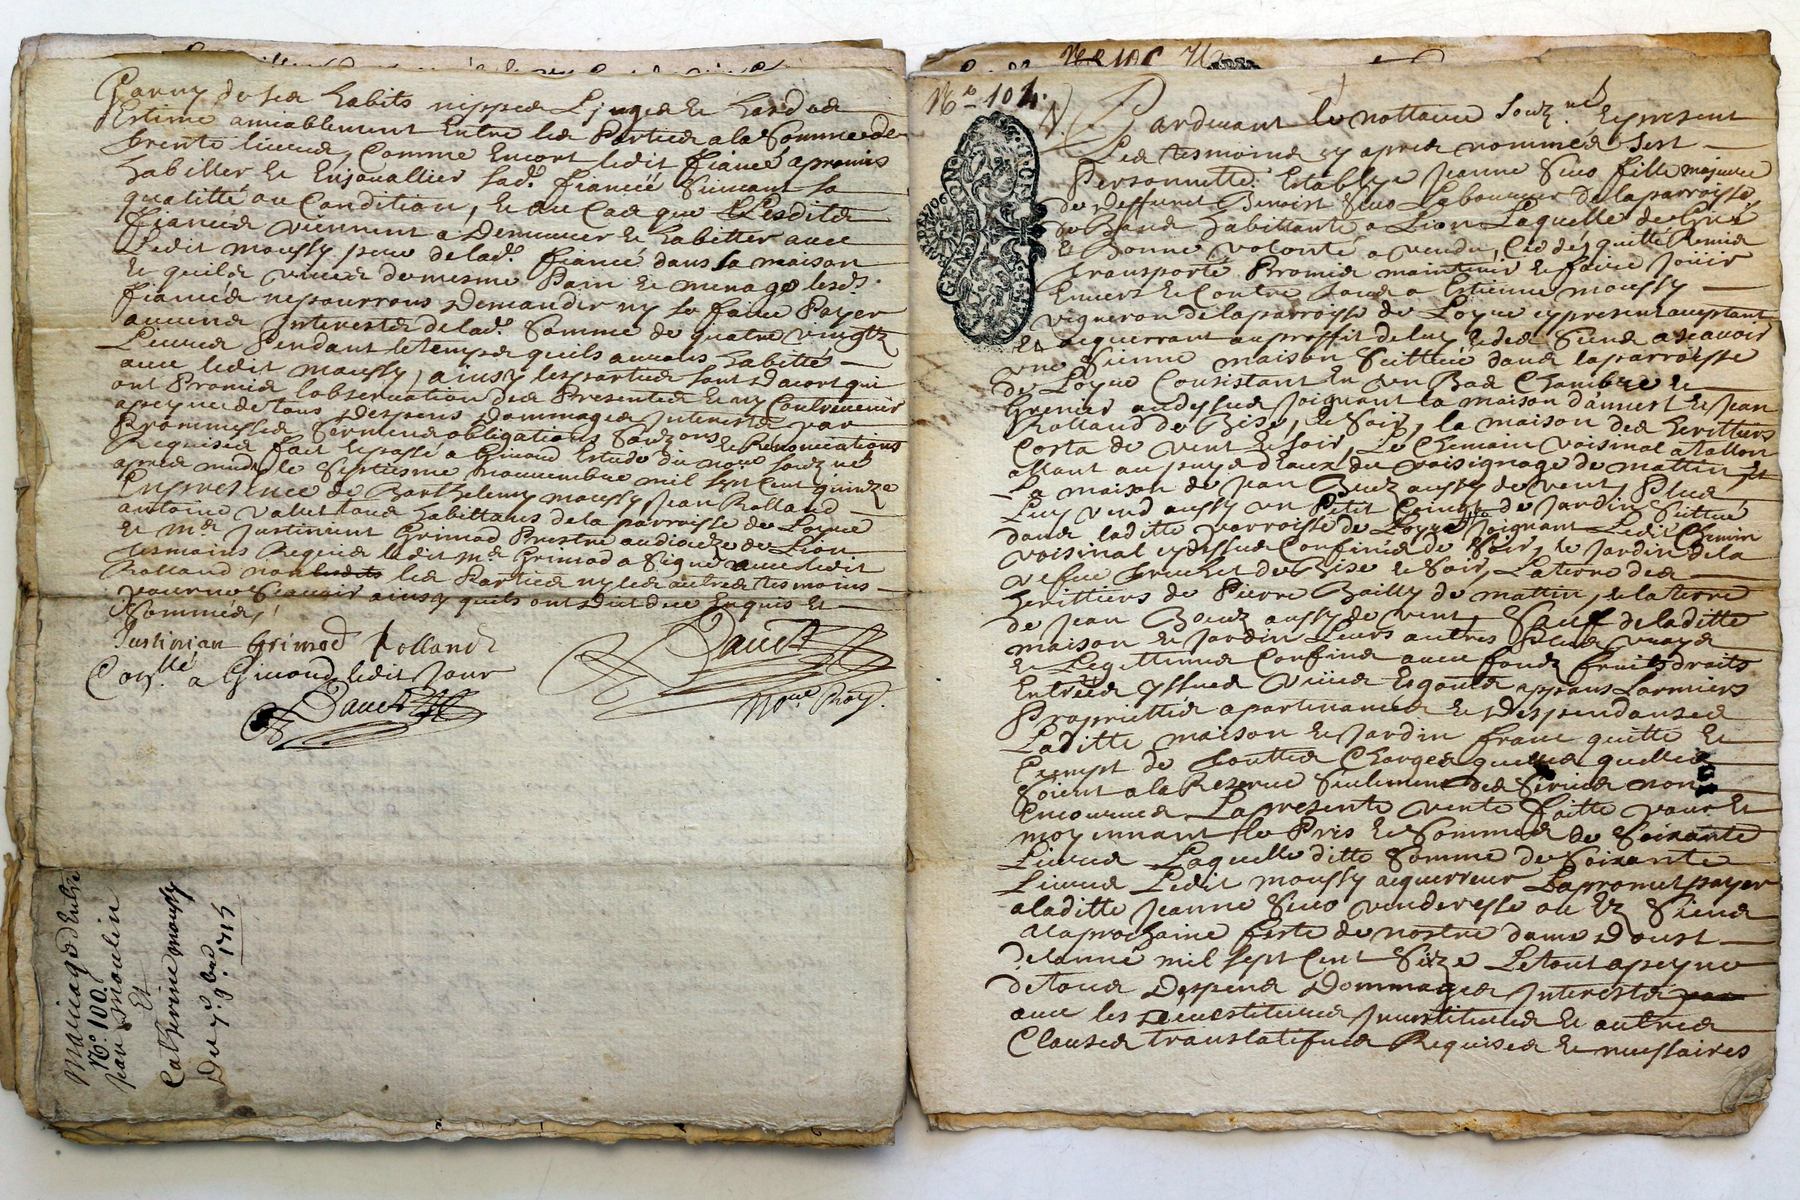 Garny de ses habits nippes Linges et hardes
Estimé amiablement Entre les Parties a la Somme de
trente livres, Comme Encort ledit fiancé a promis
habiller et Enjouallier lad.e fiancée Suivant sa
qualitté ou Condition, et au Cas que Lesdits
fiancés viennent a Demeurer et habitter avec
Ledit moussy pere de lad.e fiancée dans sa maison
et quils vivent de mesme Pain et menage lesd.s
fiancés ne pourrons Demander ny se faire Payer
aucuns Interests de lad.e Somme de quatre vingtz
Livres Pendant le temps quils aurons habitté
avec ledit moussy, ainsy les parties sont Dacort qui
ont Promis lobservation des Presentes et ny Contrevenir
a peyne de tous Despens Dommages Interests par
Prommesses Serments obligations et Renonciations
Requises fait et passé a Givord Estude du no.re Souz.né
apres midy le Septiesme novembre mil sept Cent quinze
En presence de Barthelemy moussy, Jean Rolland
antoine habittans de la parroisse de Loyre
et m.re Justinient Grimod Prestre au dioceze de Lion
tesmoins Requis ledit m.re Grimod a Signé avec ledit
Rolland non les Parties ny les autres tesmoins
pour ne Scavoir ainsy quils ont Dict de ce Enquis et
Sommés,
Justinian Grimod Rolland
Con.llé a Givord ledit Jour
No.re Roy.
Mariage Entre
N.o 100.
Jean Moulin
Et
Catherine moussy
Du 7.e 9.bre 1715
N.o 101.
Pardevant le nottaire Souz.né Et present
Les tesmoins cy apres nommés Sert
Personnelle. Establye Jeanne fille majeure
de deffunct Benoist Laboureur de la parroisse
habittante a Lion Laquelle de Gré
et Bonne volonté a vendu, Ceddé, quitté Remis
transporté Promis maintenir et faire Jouir
Envers et Contre tous a Estienne moussy
vigneron de la parroisse de Loyre cy present acceptant
et acquerrant au proffit de luy et des Siens a scavoir
une Sienne maison Scittuée dans la parroisse
de Loyre Consistant En un Bas Chambre et
Grenier au dessus Joignant la maison et Jean
Rolland de Bise, et Soir, la maison des heritiers
Costa de vent et soir, Le Chemain voisinal a tallon
allant au puys d'eaux du voisignage de mattin et
La maison de Jean aussy de vent, Plus
Luy vend aussy un Petit Coing de Jardin Scittué
dans laditte parroisse de Loyre Joignant Ledit Chemin
voisinal cy dessus Confiné de Soir, le Jardin de la
vefve de Bise et Soir, La terre des
heritiers de Pierre Bailly de mattin, et la terre
de Jean aussy de vent Sauf de laditte
maison et Jardin Leurs autres Plus vrays
et Legittimes Confins avec fonds fruits droits
Entrées yssues vües Esgouts appans Larmiers
Proprietés apartenances et Despendances
Laditte maison et Jardin franc quitte et
Exempt de touttes Charges quelles quelles
Soient a la Reserve Seulement des Servis non
Encourus La presente vente faitte pour et
moyennant le Pris et Somme de Soixante
Livres Laquelle ditte Somme de Soixante
Livres Ledit moussy acquerreur La promet payer
a laditte Jeanne venderesse ou Ez Siens
a la prochaine feste de nostre dame D'oust
de lannée mil sept Cent Seize Le tout a peyne
de tous Despens Dommages Interests
avec les Devestitures Investitures et autres
Clauses translatifves Requises et necessaires